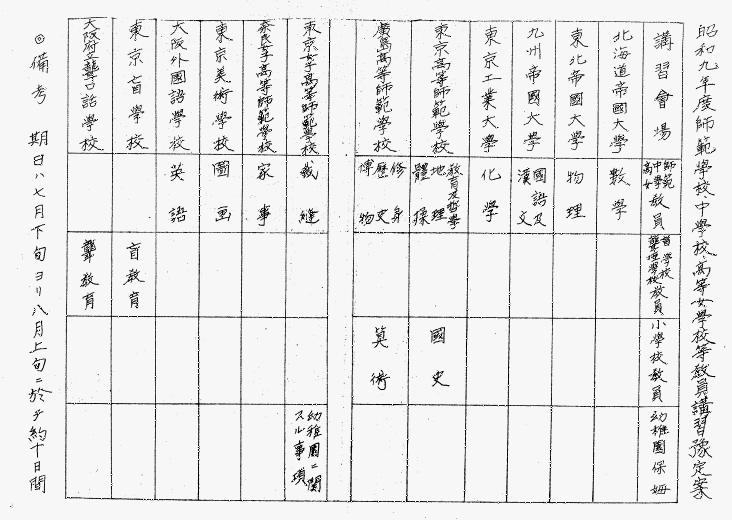 昭和九年度師範學校、中學校、高等女學校等教員講習豫定案
講習會場
師範
中學
高女
教員
盲學校
聾啞學校
教員
小學校教員
幼稚園保姆
北海道帝國大學
數學
東北帝國大學
物理
九州帝國大學
國語及
漢文
東京工業大學
化學
東京高等師範學校
教育及哲學
地理
體操
國史
廣島高等師範學校
修身
歷史
博物
算術
東京女子高等師範學校
裁縫
幼稚園ニ關
スル事項
奈良女子高等師範學校
家事
東京美術學校
圖画
大阪外國語學校
英語
東京盲學校
盲教育
大阪府立聾口話學校
聾教育
◎備考 期日ハ七月下旬ヨリ八月上旬ニ於テ約十日間